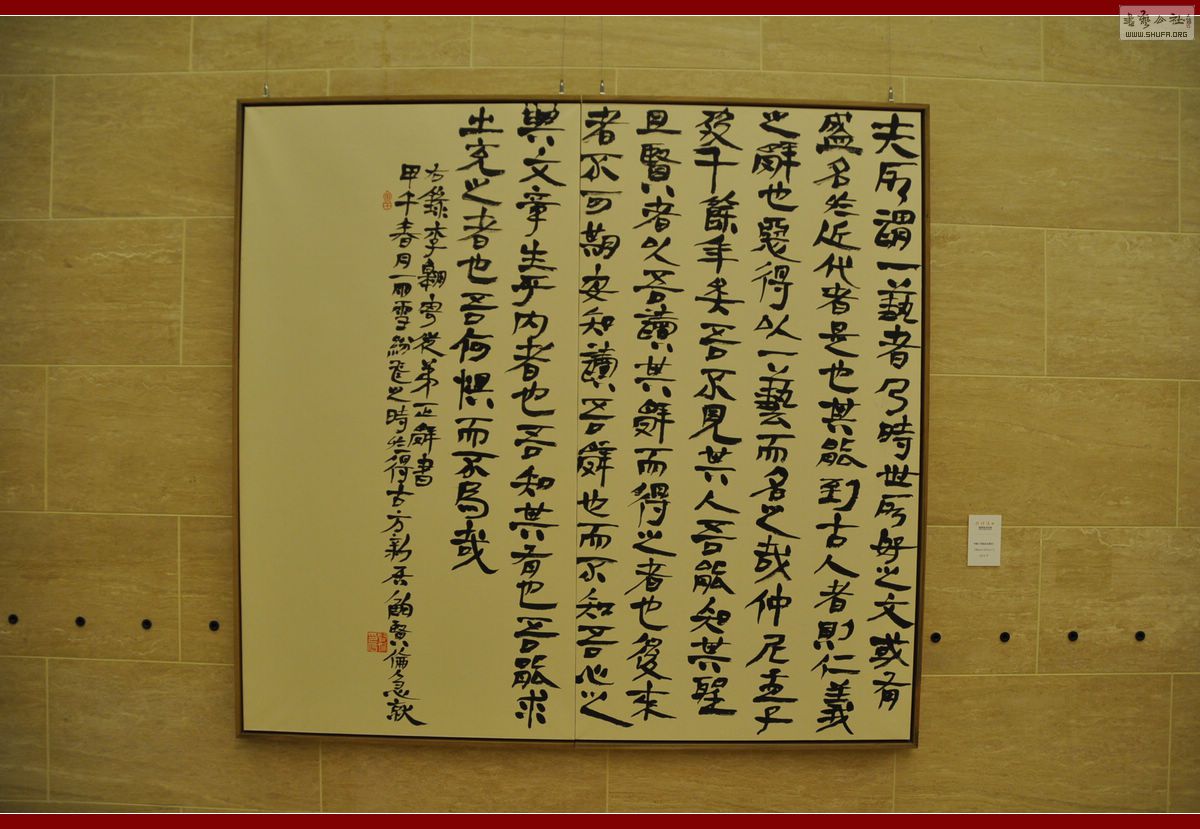 夫所謂一藝者乃時世所好之文或有
盛名於近代者是也其能到古人者則仁義
之辭也惡得以一藝而名之哉仲尼孟子
歿千餘年矣吾不見其人吾能知其聖
且賢者以吾讀其辭而得之者也後來
者不可期安知讀吾辭也而不知吾心之
與文章生乎內者也吾知其有也吾能求
出充之者也吾何懼而不為哉
右錄李翱寄從弟正辭書
甲午春月雨雪紛飛之時於得古方新居鮑賢倫急就
WWW.SHUFA.ORG